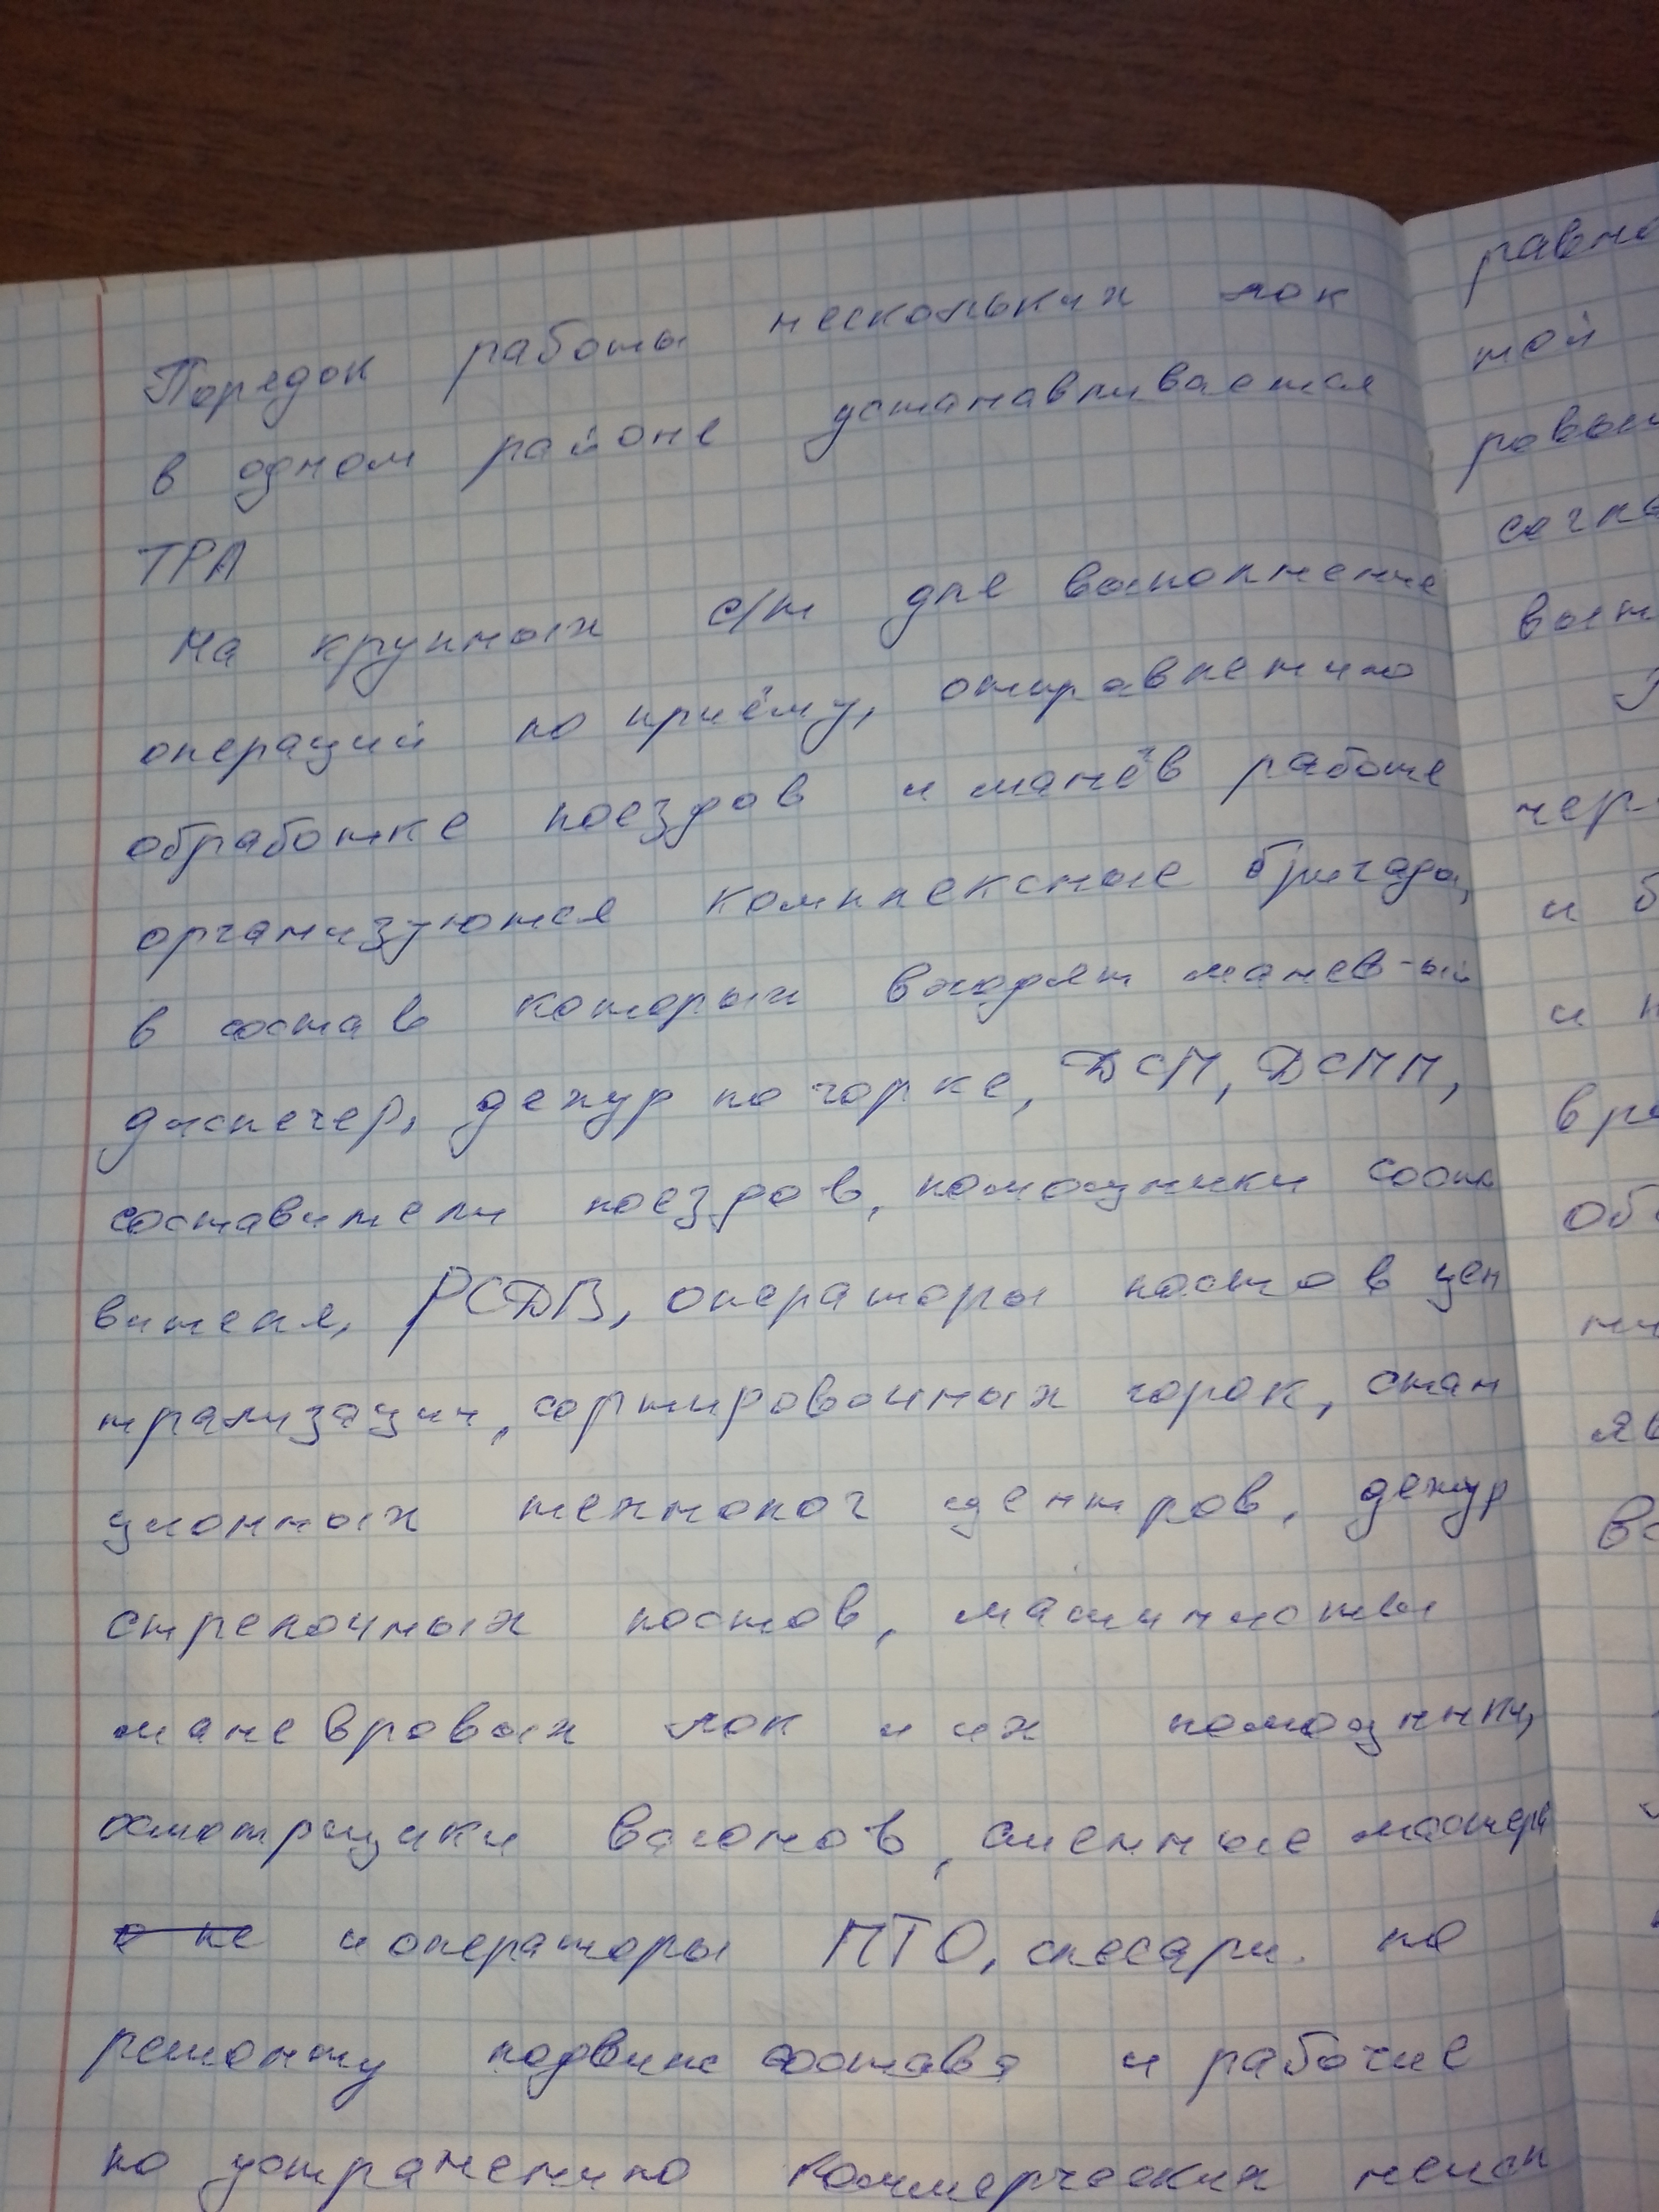 Порядок работы нескольких лок
в одном районе устанавливается
ТРА
На крупных с/т для выполнение
операций по приёму, отправлению
обработке поездов и манёв работе
организуются комплексные бригады,
в состав которых входят манев-ый
диспечер, дежур по горке, ДСП, ДСПП,
составители поездов, помощники соста
вителя, РСДВ, операторы постов цен
трализации, сортировочных горок, стан
ционных технолог центров, дежур
стрелочных постов, машинисты
маневровых лок и их помощники,
осмотрщики вагонов, сменные мастера
и операторы ПТО, слесари по
ремонту подвиж состава и рабочие
по устранению коммерческих неисп
равно
той
ровы
сигна
вые
чер
и б
и н
вра
об
яв